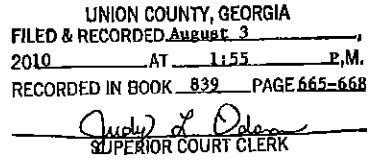 UNION COUNTY, GEORGIA
FILED & RECORDED August 3,
2010 AT 1:55 P.M.
RECORDED IN BOOK 839 PAGE 665-668
Judy L Odom
SUPERIOR COURT CLERK